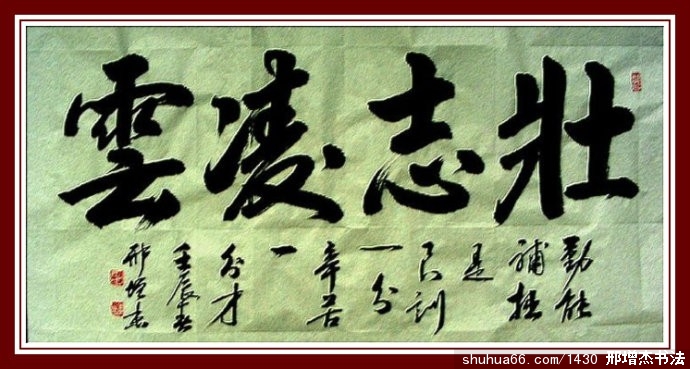 壮志凌雲
勤能
補拙
是
良訓
一分
辛苦
一
分才
壬辰春
邢增杰
shuhua66.com/1430 邢增杰书法